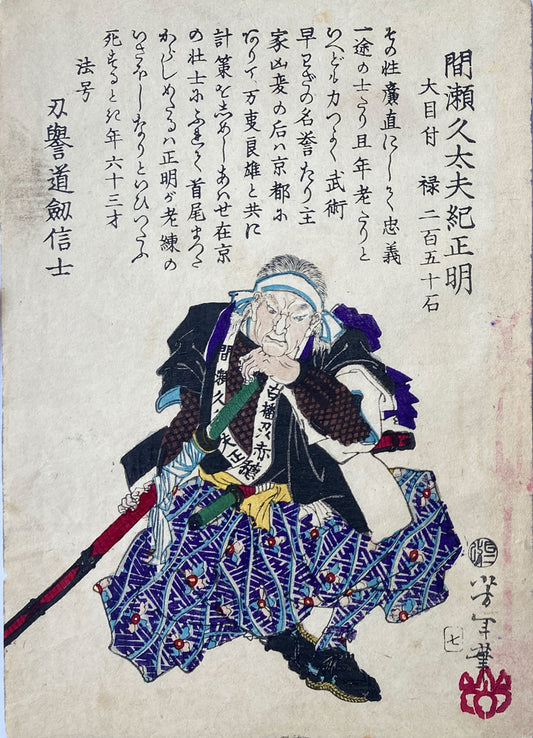 間瀬久太夫紀正明
大目付 禄 二百五十石
その性廣直にしてく忠義
一途の士たり且年老たりと
いへども力つよく武術
早わざの名誉たり主
家凶変の后ハ京都に
ありて万事良雄と共に
計策を志めしあハせ在京
の壮士にふれて首尾まつたく
からしめたるハ正明が老練の
いさほしなりといひつたふ
死するとき年六十三才
法号
刃譽道劔信士
間瀬久
芳年筆
七